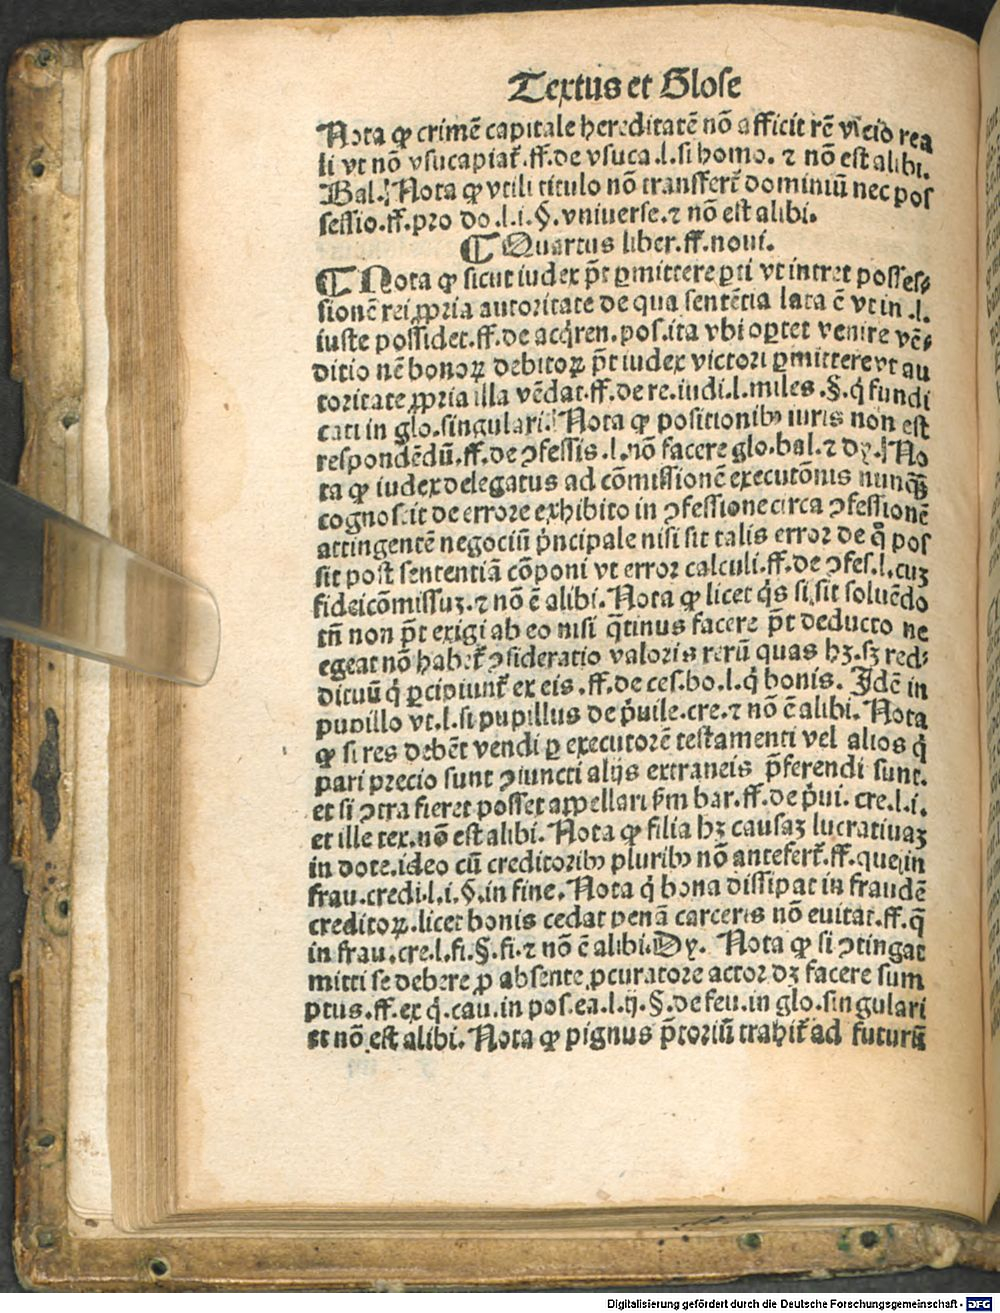 Textus et Glose
Nota ꝙ crimē capitale hereditatē nō afficit rē vicio rea
li vt nō vsucapiat᷑.ff.de vsuca.l.si homo. ⁊ nō est alibi.
Bal. Nota ꝙ vtili titulo nō transfert᷑ dominiū nec pos
sessio.ff.pro do.l.i.§.vniuerse.⁊ nō est alibi.
¶ Quartus liber.ff.noui.
¶ Nota ꝙ sicut iudex p̄t ꝑmittere ꝑti vt intret posses⸗
sionē rei ꝓpria autoritate de qua sentētia lata ē vt in .l.
iuste possidet.ff.de acq̇ren.pos.ita vbi oꝑtet venire vē⸗
ditio nē bonoꝝ debitoꝝ p̄t iudex victori ꝑmittere vt au
toritate ꝓpria illa vēdat.ff.de re.iudi.l.miles.§.q̇ fundi
cati in glo.singulari. Nota ꝙ positionibꝰ iuris non est
respondēdū.ff.de ꝯfessis.l.nō facere glo.bal.⁊ dy. No
ta ꝙ iudex delegatus ad cōmissionē executōnis nunqꝫ̄
cognoscit de errore exhibito in ꝯfessione circa ꝯfessionē
attingentē negociū pͥncipale nisi sit talis error de qͣ pos
sit post sententiā cōponi vt error calculi.ff.de ꝯfes.l.cuꝫ
fideicōmissuꝫ.⁊ nō ē alibi. Nota ꝙ licet q̇s si sit soluēdo
tn̄ non p̄t exigi ab eo nisi q̄tinus facere p̄t deducto ne
egeat nō habet᷑ ꝯsideratio valoris rerū quas hꝫ.sꝫ red⸗
dituū q̇ ꝑcipiunt᷑ ex eis.ff.de ces.bo.l.q̇ bonis. Idē in
pupillo vt.l.si pupillus de pͥuile.cre.⁊ nō ē alibi. Nota
ꝙ si res debēt vendi ꝑ executorē testamenti vel alios q̇
pari precio sunt ꝯiuncti alijs extraneis p̄ferendi sunt.
et si ꝯtra fieret posset appellari ẜm bar.ff.de pͥui. cre.l.i.
et ille tex.nō est alibi. Nota ꝙ filia hꝫ causaꝫ lucratiuaꝫ
in dote.ideo cū creditoribꝰ pluribꝰ nō antefert᷑.ff.que in
frau.credi.l.i.§.in fine. Nota q̇ bona dissipat in fraudē
creditoꝝ.licet bonis cedat penā carceris nō euitat.ff.q̄
in frau.cre.l.fi.§.fi.⁊ nō ē alibi.Dy. Nota ꝙ si ꝯtingat
mitti se debere ꝓ absente ꝓcuratore actor dꝫ facere sum
ptus.ff.ex q̇.cau.in pos.ea.l.ij.§.de feu.in glo.singulari
et nō est alibi. Nota ꝙ pignus p̄toriū trahit᷑ ad futurū
Digitalisierung gefördert durch die Deutsche Forschungsgemeinschaft - DFG